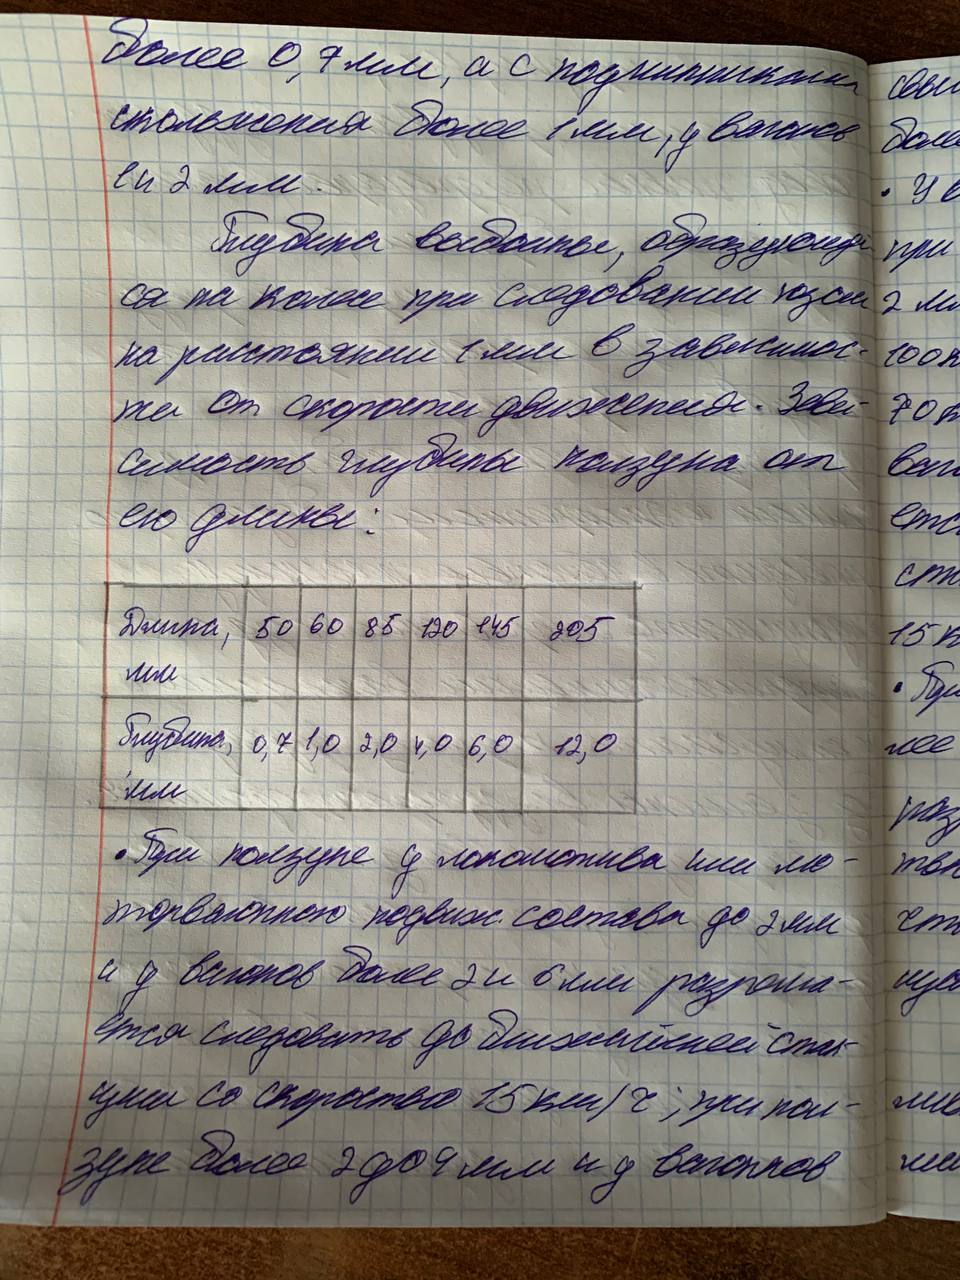 более 0,7 мм, а с подшипниками
скольжения более 1 мм, у вагонов
1 и 2 мм.
Глубина выбоины, образующей-
ся на колесе при следовании юзом
на расстоянии 1 мм в зависимос-
ти от скорости движения. Зави-
симость глубины ползуна от
его длины:
Длина, мм 50 60 85 120 145 205
Глубина, мм 0,7 1,0 2,0 4,0 6,0 12,0
• При ползуне у локомотива или мо-
торвагонного подвиж. состава до 2 мм
и у вагонов более 2 и 6 мм разреша-
ется следовать до ближайшей стан-
ции со скоростью 15 км/ч; при пол-
зуне более 2 до 4 мм и у вагонов
более
• У в
при
2 мм
100 к
70 к
ваг
етс
ст
15 к
• При
лее
раз